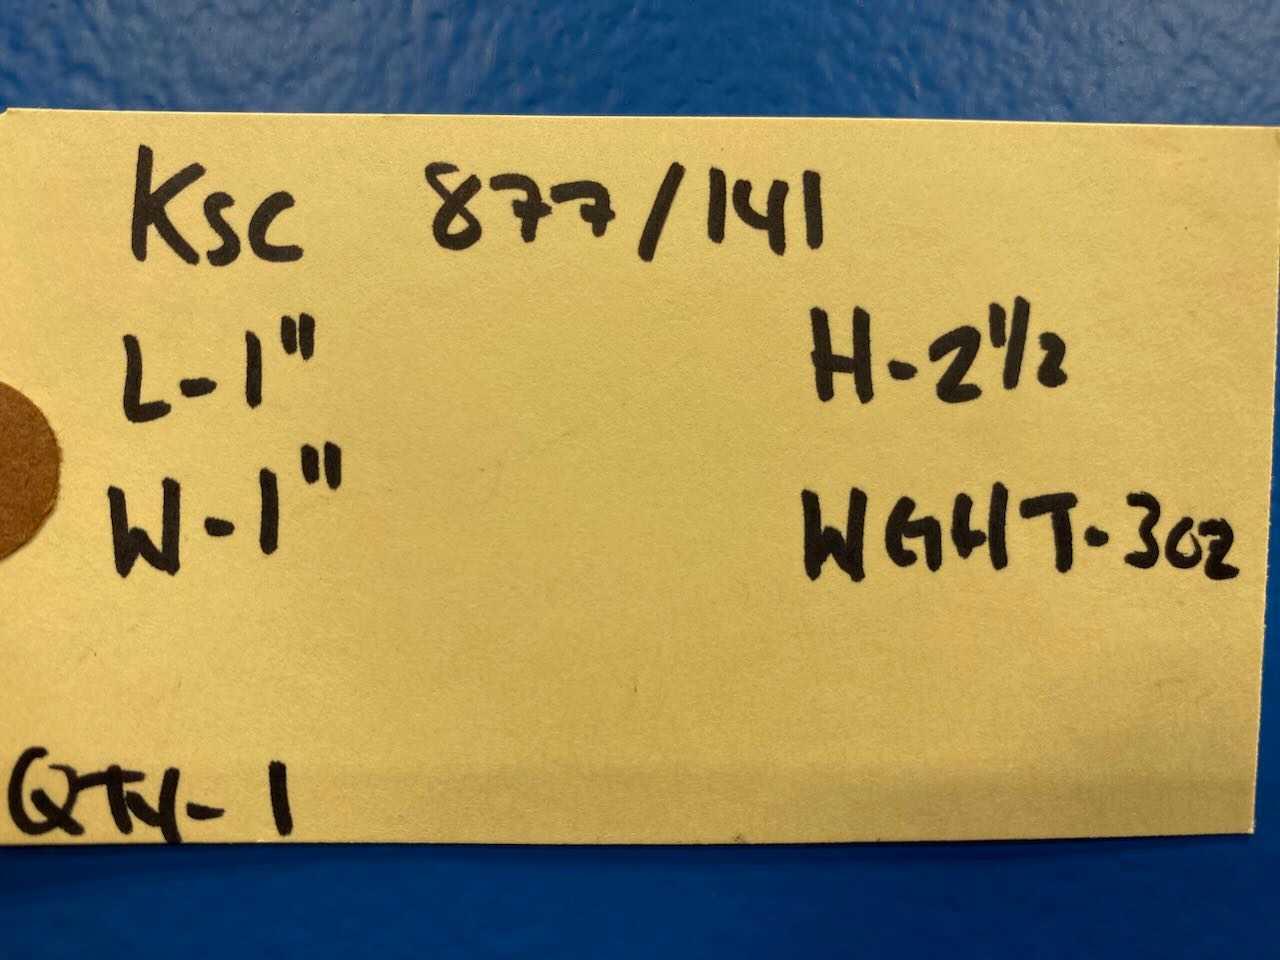 Ksc 877/141
L-1" H-2 1/2
W-1" WGHT-3oz
QTY-1